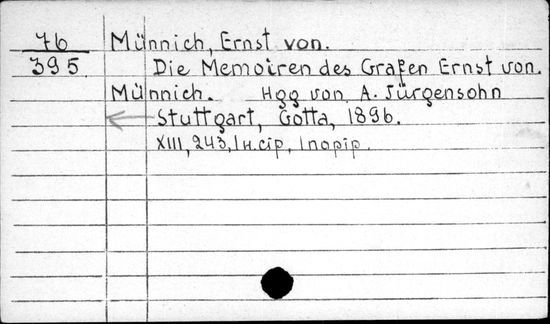 76 Münnich, Ernst von.
395. Die Memoiren des Grafen Ernst von.
Münnich. Hgg von A. Jürgensohn
Stuttgart, Cotta, 1896.
XIII, 243, 1 н.стр, 1 портр.